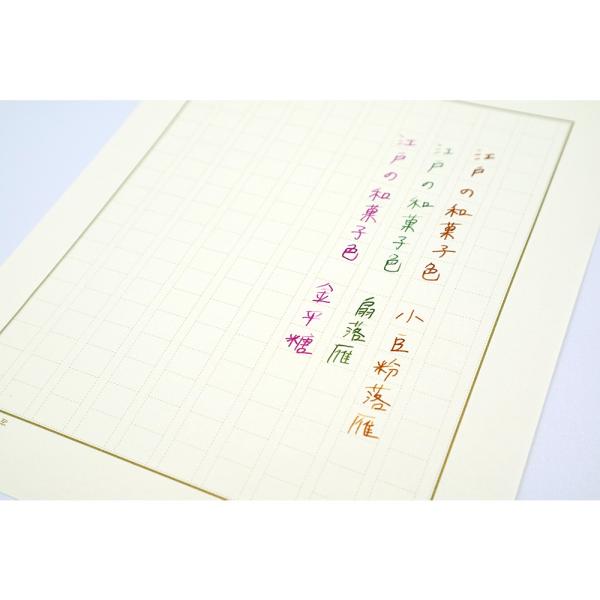 江戸の和菓子色 小豆粉落雁
江戸の和菓子色 扇落雁
江戸の和菓子色 金平糖